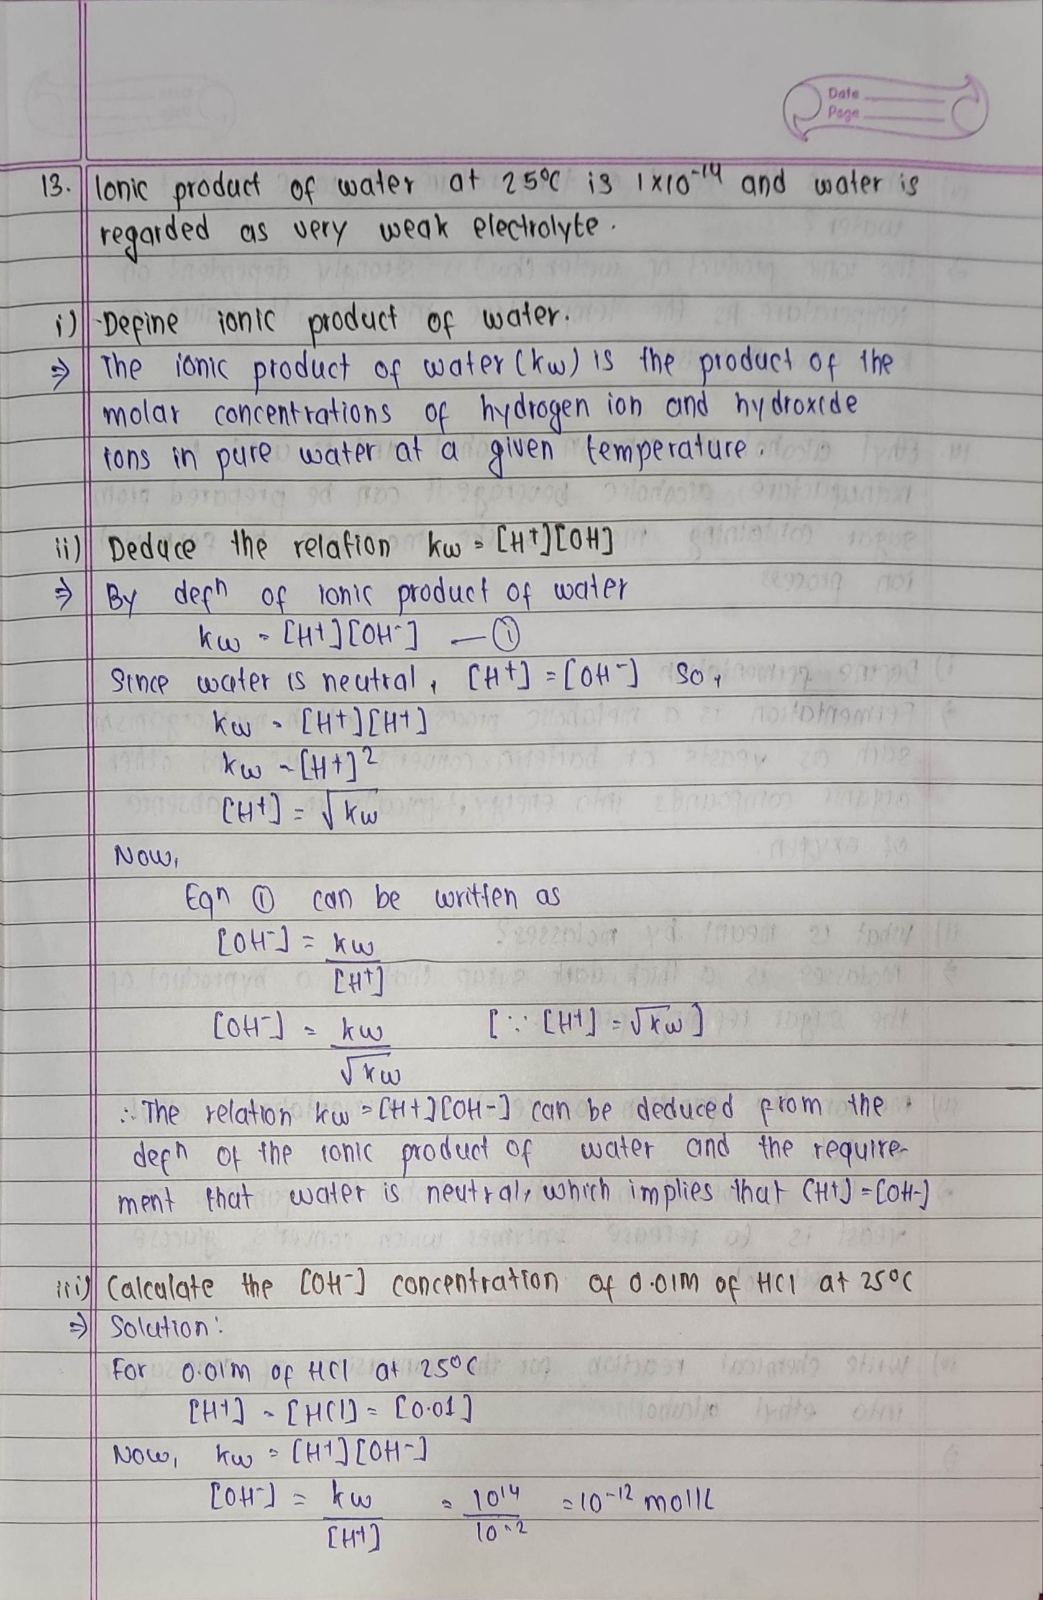 Date
Page
13. Ionic product of water at 25°C is 1×10⁻¹⁴ and water is
regarded as very weak electrolyte.
i) Define ionic product of water.
⇒ The ionic product of water (kw) is the product of the
molar concentrations of hydrogen ion and hydroxide
ions in pure water at a given temperature.
ii) Deduce the relation kw = [H+][OH]
⇒ By defn of ionic product of water
kw = [H+][OH-] — ①
Since water is neutral, [H+] = [OH-] So,
kw = [H+][H+]
kw = [H+]²
[H+] = √kw
Now,
Eqn ① can be written as
[OH-] = kw
[H+]
[OH-] = kw [∵ [H+] = √kw]
√kw
∴ The relation kw = [H+][OH-] can be deduced from the
defn of the ionic product of water and the require-
ment that water is neutral, which implies that [H+] = [OH-]
iii) Calculate the [OH-] concentration of 0.01M of HCl at 25°C
⇒ Solution:
For 0.01M of HCl at 25°C
[H+] = [HCl] = [0.01]
Now, kw = [H+][OH-]
[OH-] = kw = 10¹⁴ = 10⁻¹² mol/L
[H+] 10⁻²